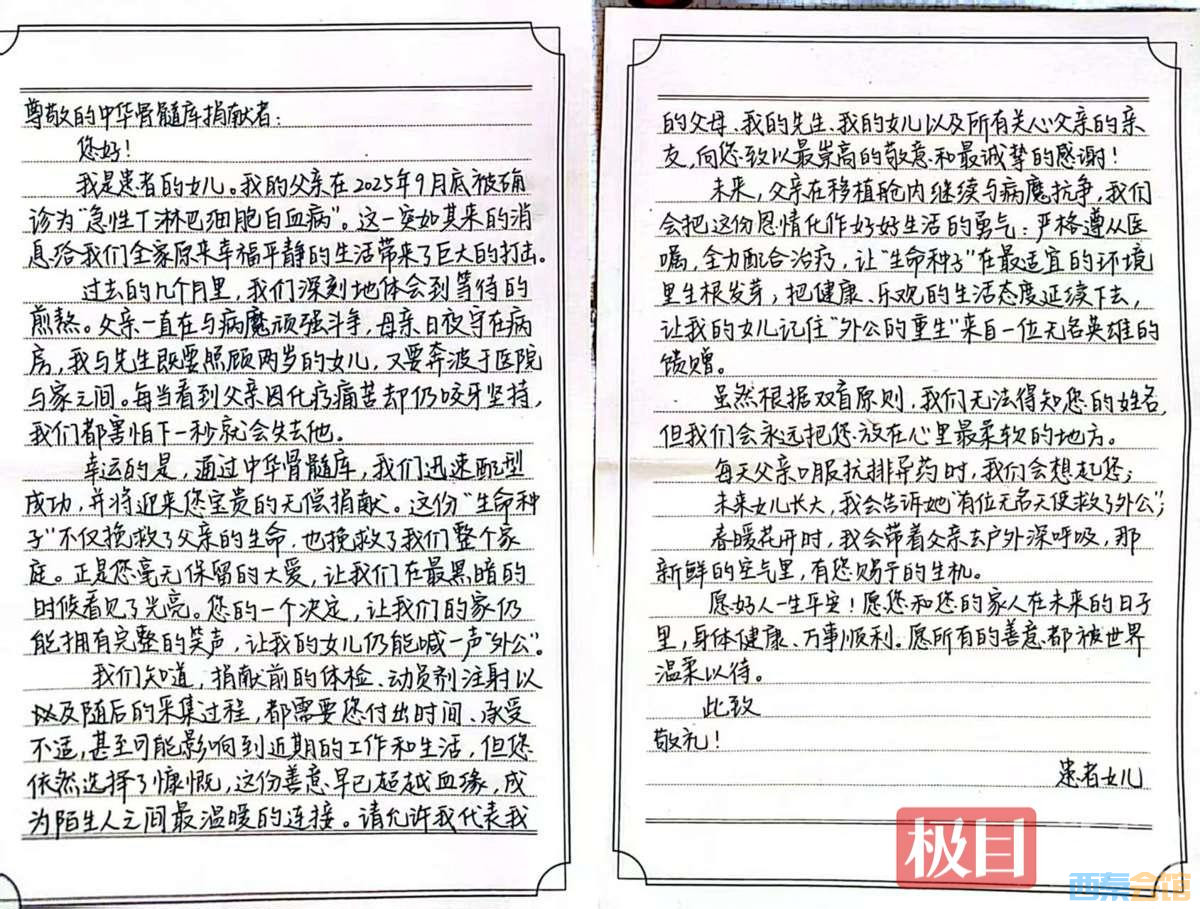 尊敬的中华骨髓库捐献者：
您好！
我是患者的女儿。我的父亲在2025年9月底被确
诊为“急性T淋巴细胞白血病”。这一突如其来的消
息给我们全家原来幸福平静的生活带来了巨大的打击。
过去的几个月里，我们深刻地体会到等待的
煎熬。父亲一直在与病魔顽强斗争，母亲日夜守在病
房，我与先生既要照顾两岁的女儿，又要奔波于医院
与家之间。每当看到父亲因化疗痛苦却仍咬牙坚持，
我们都害怕下一秒就会失去他。
幸运的是，通过中华骨髓库，我们迅速配型
成功，并将迎来您宝贵的无偿捐献。这份“生命种
子”不仅挽救了父亲的生命，也挽救了我们整个家
庭。正是您毫无保留的大爱，让我们在最黑暗的
时候看见了光亮。您的一个决定，让我们的家仍
能拥有完整的笑声，让我的女儿仍能喊一声“外公”。
我们知道，捐献前的体检、动员剂注射以
及随后的采集过程，都需要您付出时间、承受
不适，甚至可能影响到近期的工作和生活，但您
依然选择了慷慨，这份善意早已超越血缘，成
为陌生人之间最温暖的连接。请允许我代表我
的父母、我的先生、我的女儿以及所有关心父亲的亲
友，向您致以最崇高的敬意和最诚挚的感谢！
未来，父亲在移植舱内继续与病魔抗争，我们
会把这份恩情化作好好生活的勇气：严格遵从医
嘱，全力配合治疗，让“生命种子”在最适宜的环境
里生根发芽，把健康、乐观的生活态度延续下去，
让我的女儿记住“外公的重生”来自一位无名英雄的
馈赠。
虽然根据双盲原则，我们无法得知您的姓名，
但我们会永远把您放在心里最柔软的地方。
每天父亲口服抗排异药时，我们会想起您；
未来女儿长大，我会告诉她“有位无名天使救了外公”；
春暖花开时，我会带着父亲去户外深呼吸，那
新鲜的空气里，有您赐予的生机。
愿好人一生平安！愿您和您的家人在未来的日子
里，身体健康、万事顺利。愿所有的善意都被世界
温柔以待。
此致
敬礼！
患者女儿
极目
西秦会馆